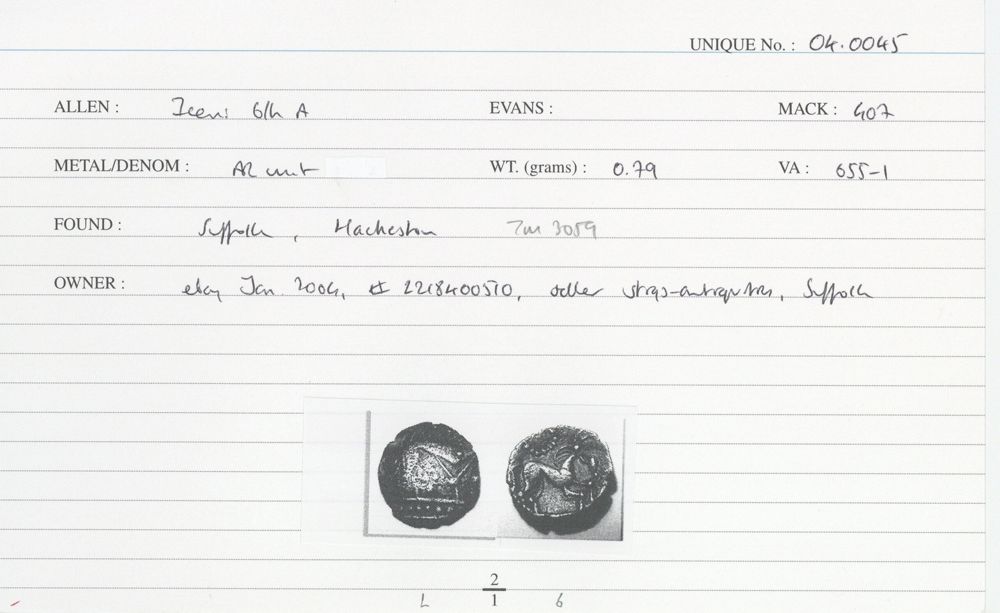 UNIQUE No. : 04.0045
ALLEN : Iceni B/h A EVANS : MACK : 407
METAL/DENOM : AR unit WT. (grams) : 0.79 VA : 655-1
FOUND : Suffolk, Hacheston TM 3059
OWNER : ebay Jan. 2004, # 2218400510, seller Suffolk
2
L 1 6